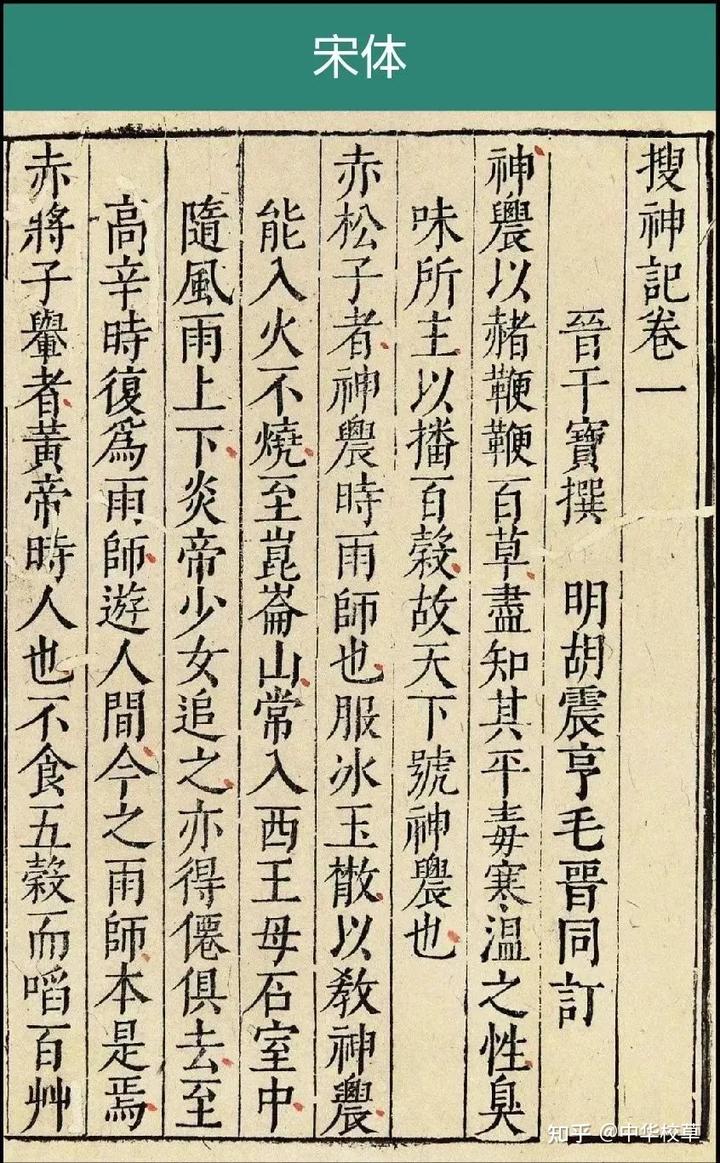 宋体
搜神記卷一
晉干寶撰 明胡震亨毛晉同訂
神農以赭鞭鞭百草盡知其平毒寒溫之性臭
味所主以播百穀故天下號神農也
赤松子者神農時雨師也服冰玉散以敎神農
能入火不燒至崑崙山常入西王母石室中
隨風雨上下炎帝少女追之亦得僊俱去至
高辛時復爲雨師遊人間今之雨師本是焉
赤將子轝者黃帝時人也不食五穀而啗百艸
知乎 @中华校草